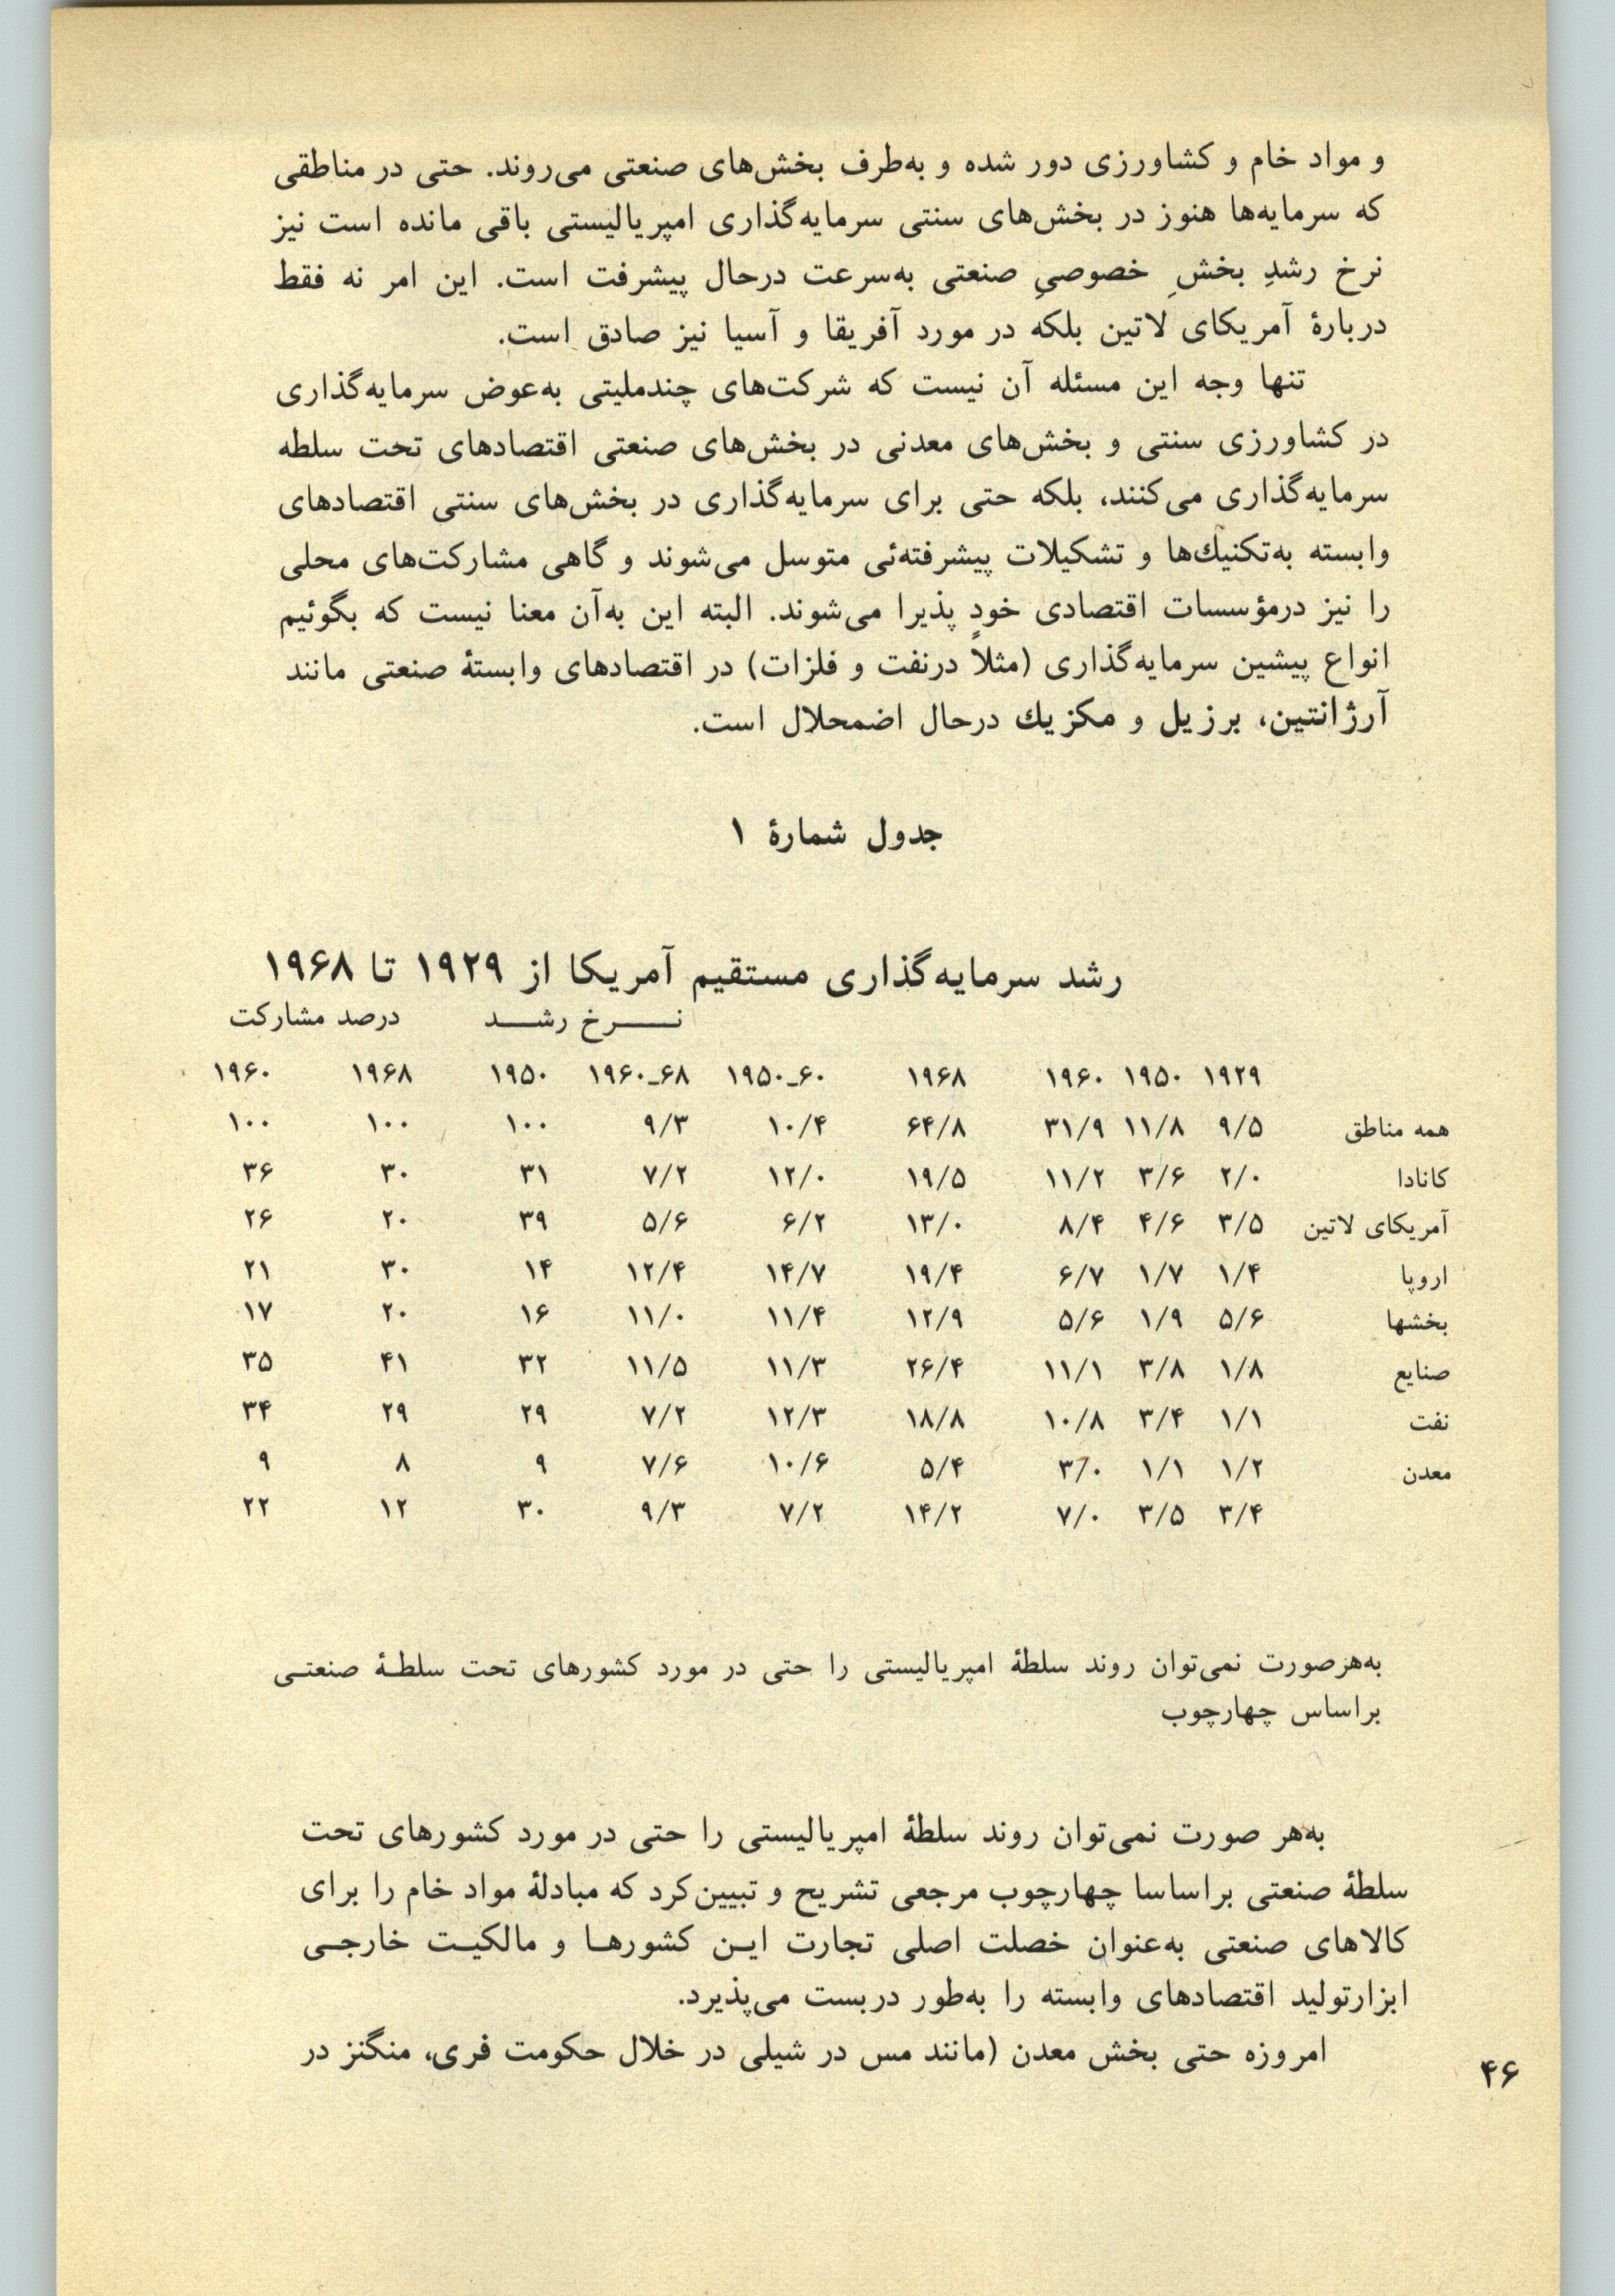 و مواد خام و کشاورزی دور شده و به‌طرف بخش‌های صنعتی می‌روند. حتی در مناطقی
که سرمایه‌ها هنوز در بخش‌های سنتی سرمایه‌گذاری امپریالیستی باقی مانده است نیز
نرخ رشدِ بخشِ خصوصیِ صنعتی به‌سرعت درحال پیشرفت است. این امر نه فقط
دربارهٔ آمریکای لاتین بلکه در مورد آفریقا و آسیا نیز صادق است.
تنها وجه این مسئله آن نیست که شرکت‌های چندملیتی به‌عوض سرمایه‌گذاری
در کشاورزی سنتی و بخش‌های معدنی در بخش‌های صنعتی اقتصادهای تحت سلطه
سرمایه‌گذاری می‌کنند، بلکه حتی برای سرمایه‌گذاری در بخش‌های سنتی اقتصادهای
وابسته به‌تکنیك‌ها و تشکیلات پیشرفته‌ئی متوسل می‌شوند و گاهی مشارکت‌های محلی
را نیز درمؤسسات اقتصادی خود پذیرا می‌شوند. البته این به‌آن معنا نیست که بگوئیم
انواع پیشین سرمایه‌گذاری (مثلاً درنفت و فلزات) در اقتصادهای وابستهٔ صنعتی مانند
آرژانتین، برزیل و مکزیك درحال اضمحلال است.
جدول شمارهٔ ۱
رشد سرمایه‌گذاری مستقیم آمریکا از ۱۹۲۹ تا ۱۹۶۸
نــــرخ رشــــد درصد مشارکت
۱۹۲۹ ۱۹۵۰ ۱۹۶۰ ۱۹۶۸ ۱۹۵۰ـ۶۰ ۱۹۶۰ـ۶۸ ۱۹۵۰ ۱۹۶۸ ۱۹۶۰
همه مناطق ۹/۵ ۱۱/۸ ۳۱/۹ ۶۴/۸ ۱۰/۴ ۹/۳ ۱۰۰ ۱۰۰ ۱۰۰
کانادا ۲/۰ ۳/۶ ۱۱/۲ ۱۹/۵ ۱۲/۰ ۷/۲ ۳۱ ۳۰ ۳۶
آمریکای لاتین ۳/۵ ۴/۶ ۸/۴ ۱۳/۰ ۶/۲ ۵/۶ ۳۹ ۲۰ ۲۶
اروپا ۱/۴ ۱/۷ ۶/۷ ۱۹/۴ ۱۴/۷ ۱۲/۴ ۱۴ ۳۰ ۲۱
بخشها ۵/۶ ۱/۹ ۵/۶ ۱۲/۹ ۱۱/۴ ۱۱/۰ ۱۶ ۲۰ ۱۷
صنایع ۱/۸ ۳/۸ ۱۱/۱ ۲۶/۴ ۱۱/۳ ۱۱/۵ ۳۲ ۴۱ ۳۵
نفت ۱/۱ ۳/۴ ۱۰/۸ ۱۸/۸ ۱۲/۳ ۷/۲ ۲۹ ۲۹ ۳۴
معدن ۱/۲ ۱/۱ ۳/۰ ۵/۴ ۱۰/۶ ۷/۶ ۹ ۸ ۹
۳/۴ ۳/۵ ۷/۰ ۱۴/۲ ۷/۲ ۹/۳ ۳۰ ۱۲ ۲۲
به‌هرصورت نمی‌توان روند سلطهٔ امپریالیستی را حتی در مورد کشورهای تحت سلطـهٔ صنعتـی
براساس چهارچوب
به‌هر صورت نمی‌توان روند سلطهٔ امپریالیستی را حتی در مورد کشورهای تحت
سلطهٔ صنعتی براساسا چهارچوب مرجعی تشریح و تبیین‌کرد که مبادلهٔ مواد خام را برای
کالاهای صنعتی به‌عنوان خصلت اصلی تجارت ایـن کشورهـا و مالکیـت خارجـی
ابزارتولید اقتصادهای وابسته را به‌طور دربست می‌پذیرد.
امروزه حتی بخش معدن (مانند مس در شیلی در خلال حکومت فری، منگنز در
۴۶